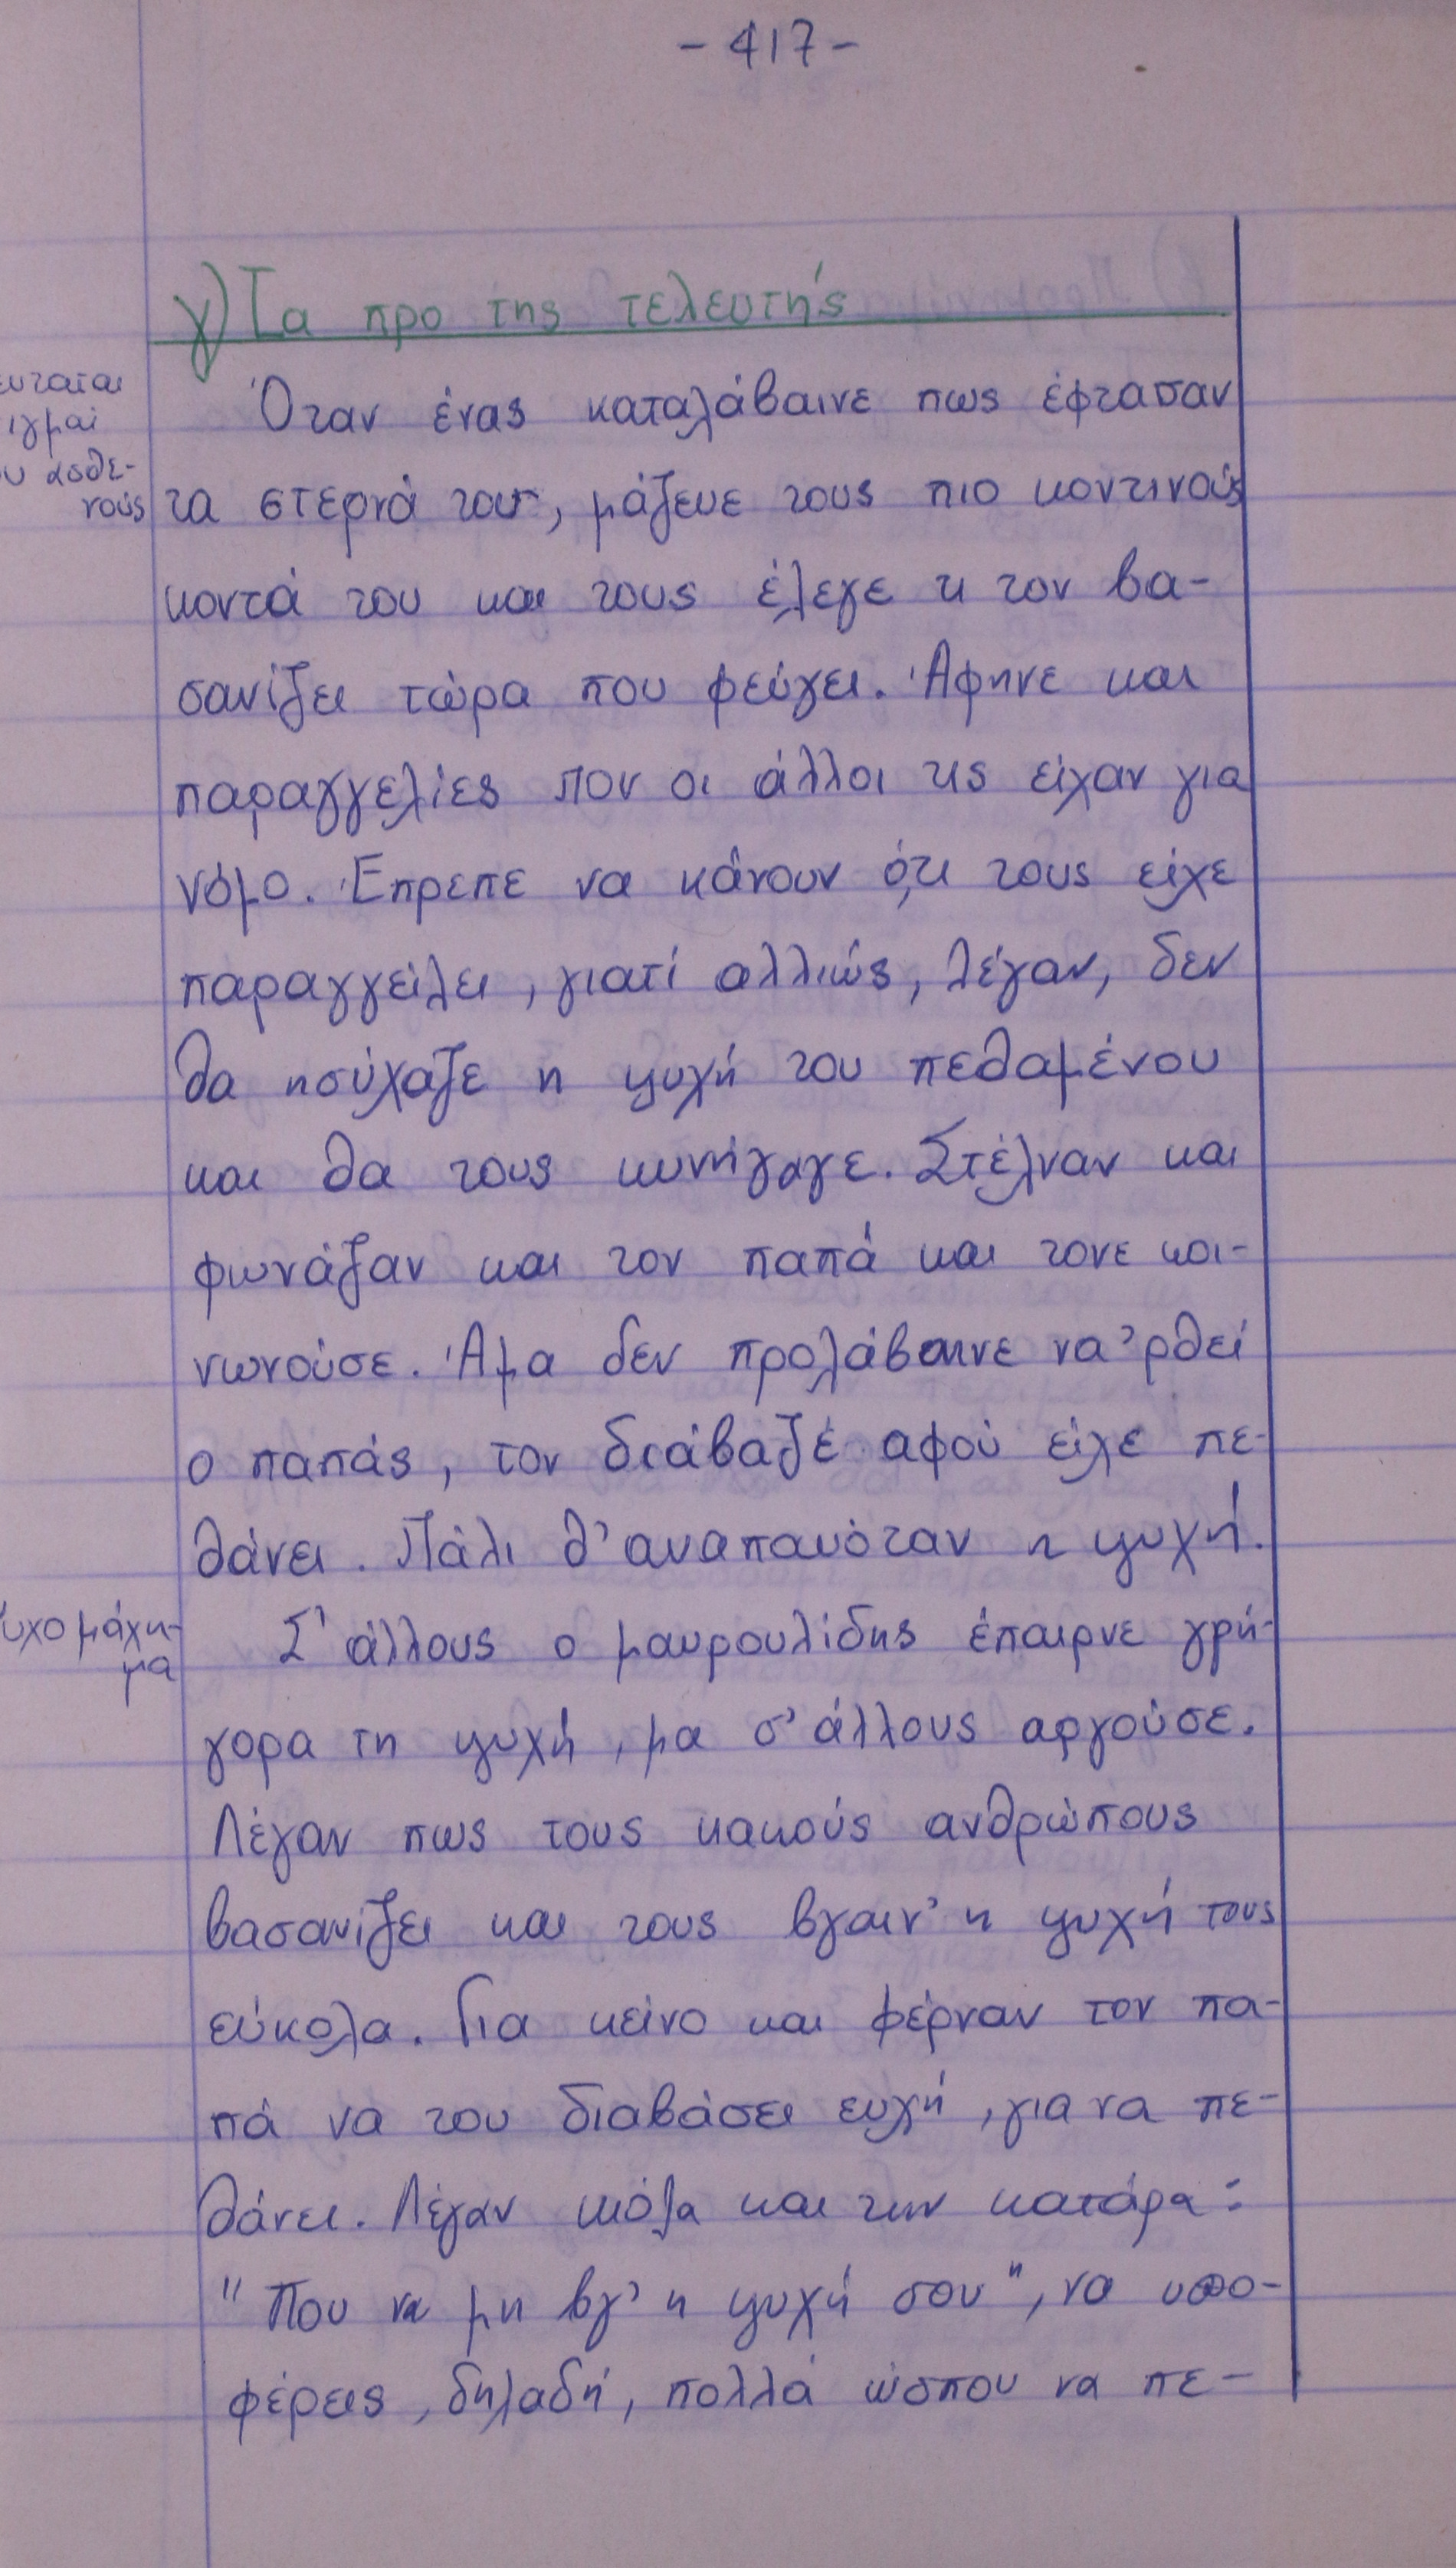 - 417 -
γ) Τα προ της τελευτής
ευταίαι
ιγμαί
ου ασθε-
νούς
Όταν ένας καταλάβαινε πως έφτασαν
τα στερνά του, μάζευε τους πιο κοντινούς
κοντά του και τους έλεγε τι τον βα-
σανίζει τώρα που φεύγει. Άφηνε και
παραγγελίες που οι άλλοι τις είχαν για
νόμο. Έπρεπε να κάνουν ό,τι τους είχε
παραγγείλει, γιατί αλλιώς, λέγαν, δεν
θα ησύχαζε η ψυχή του πεθαμένου
και θα τους κυνήγαγε. Στέλναν και
φωνάζαν και τον παπά και τονε κοι-
νωνούσε. Άμα δεν προλάβαινε να 'ρθεί
ο παπάς, τον διάβαζε αφού είχε πε-
θάνει. Πάλι θ' αναπαυόταν η ψυχή.
υχομάχη-
μα
Σ' άλλους ο μαυρουλίδης έπαιρνε γρή-
γορα τη ψυχή, μα σ' άλλους αργούσε.
Λέγαν πως τους κακούς ανθρώπους
βασανίζει και τους βγαιν' η ψυχή τους
εύκολα. Για κείνο και φέρναν τον πα-
πά να του διαβάσει ευχή, για να πε-
θάνει. Λέγαν και την κατάρα:
"Που να μη βγ' η ψυχή σου", να υπο-
φέρεις, δηλαδή, πολλά ώσπου να πε-